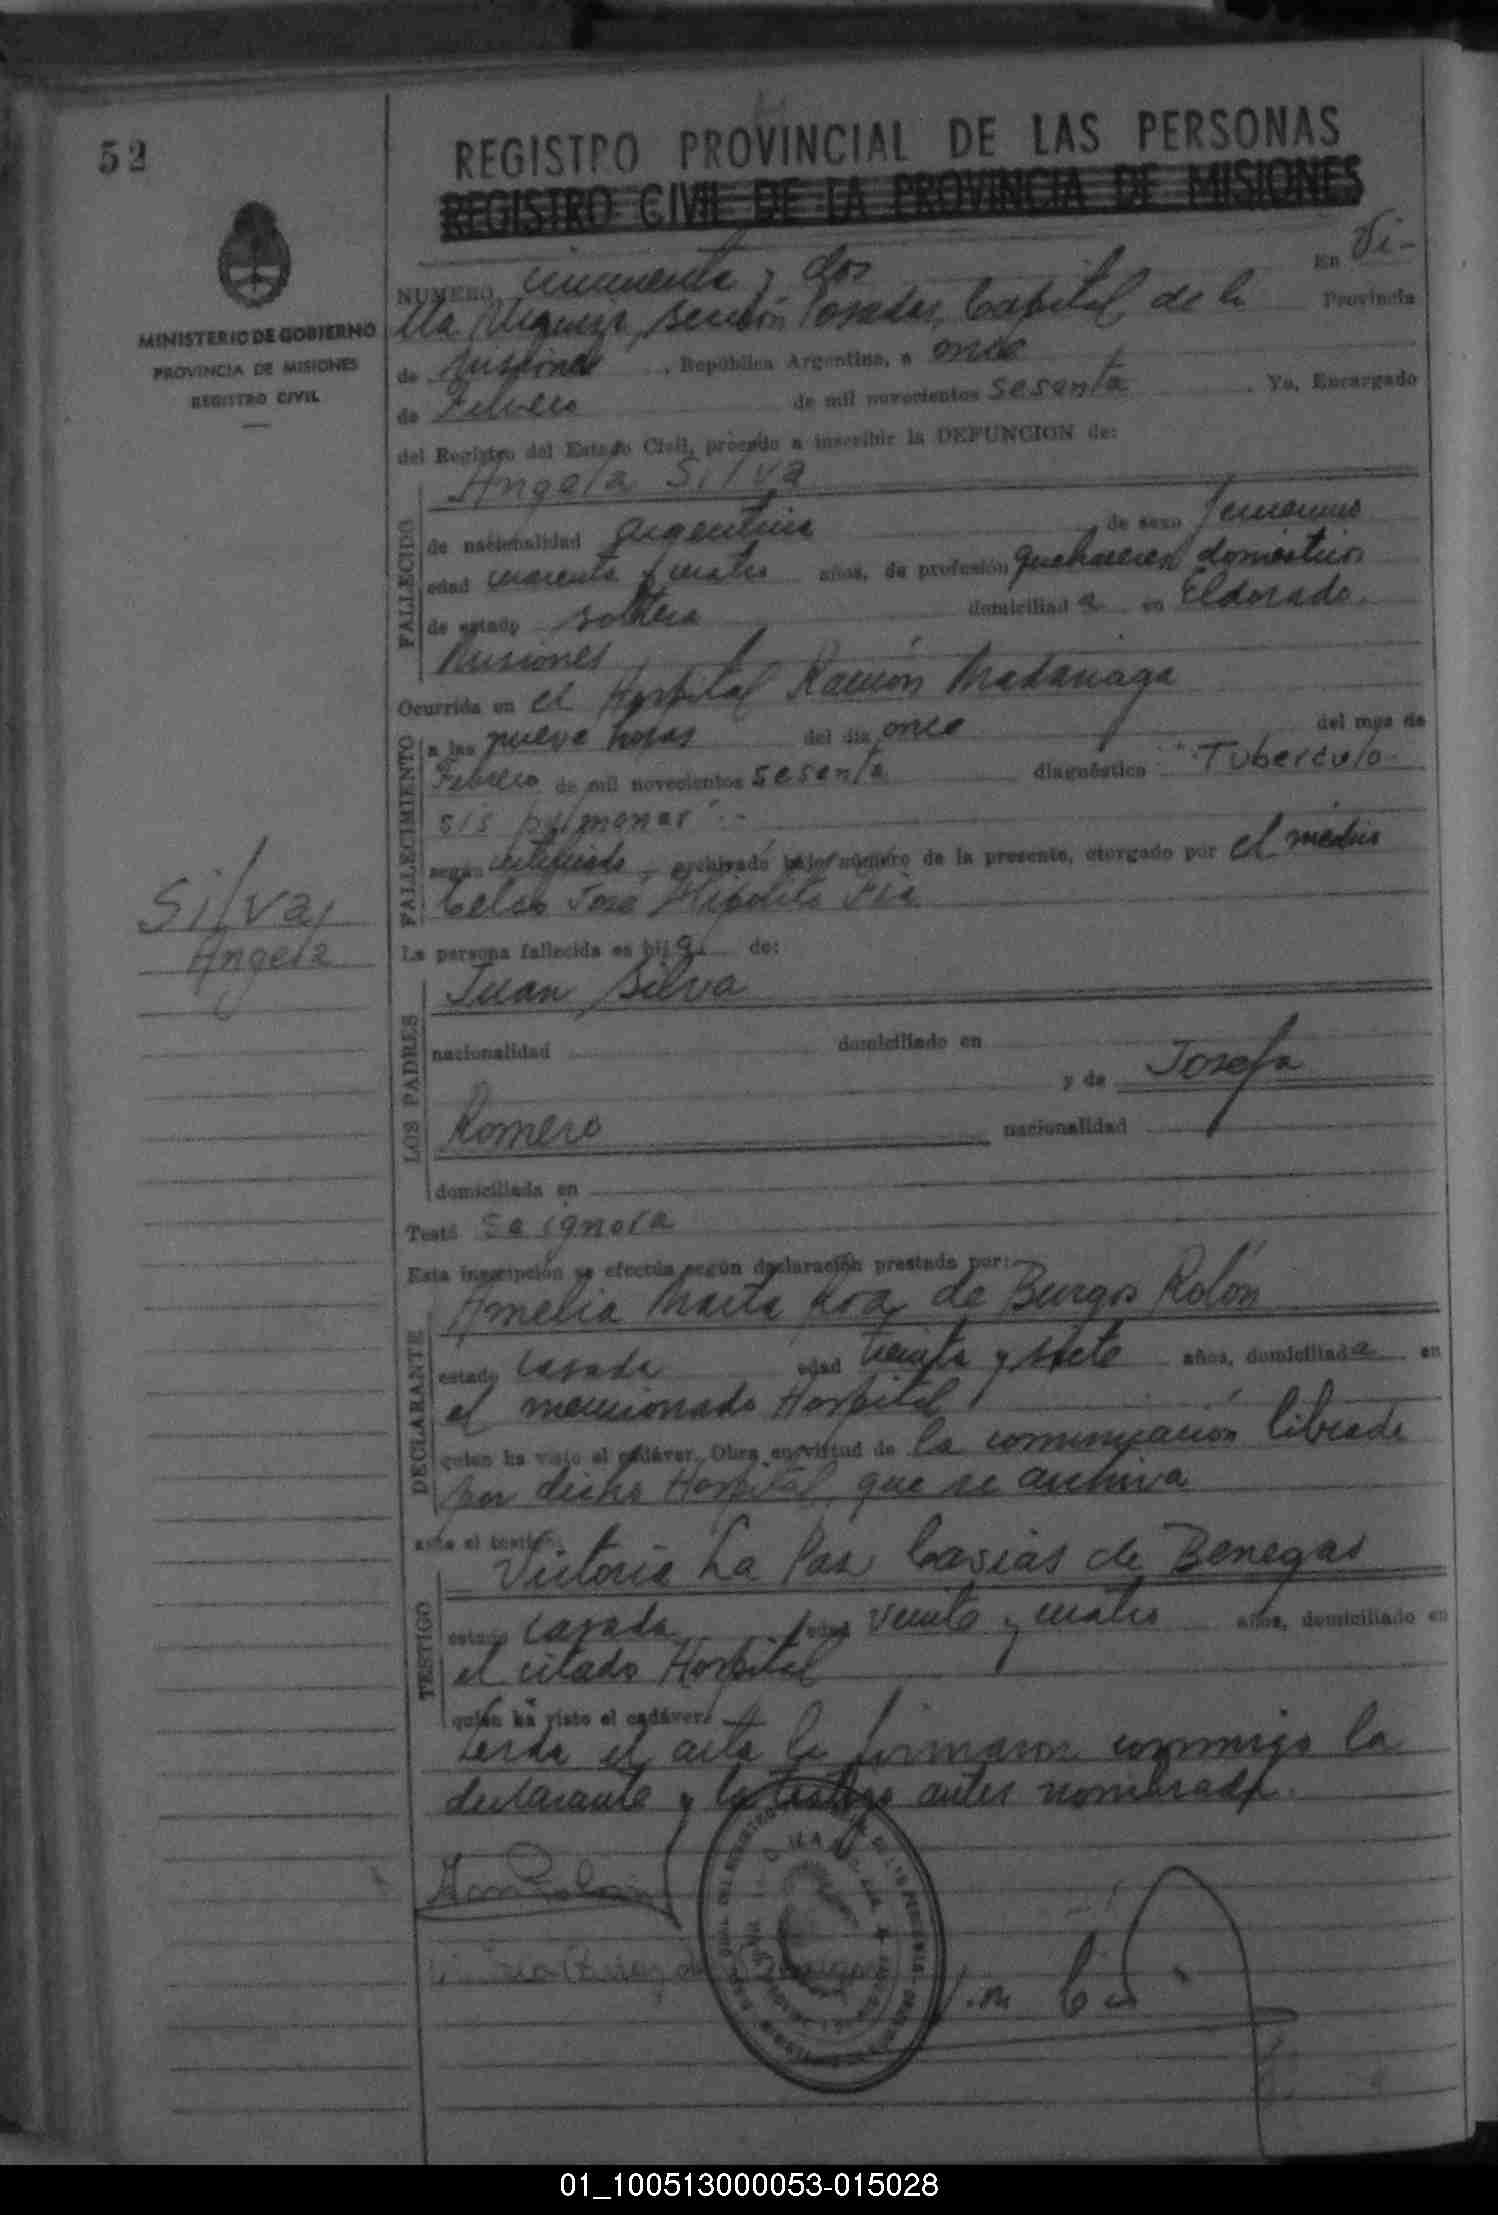 52
REGISTRO PROVINCIAL DE LAS PERSONAS
REGISTRO CIVIL DE LA PROVINCIA DE MISIONES
MINISTERIO DE GOBIERNO
PROVINCIA DE MISIONES
REGISTRO CIVIL
NUMERO cincuenta y dos En Vi-
lla Urquiza, sección Posadas, Capital de la Provincia
de Misiones, República Argentina, a once
de Febrero de mil novecientos sesenta. Yo, Encargado
del Registro del Estado Civil, procedo a inscribir la DEFUNCION de:
FALLECIDO
Angela Silva
de nacionalidad argentina de sexo femenino
edad cuarenta y cuatro años, de profesión quehaceres domésticos
de estado soltera domiciliada en Eldorado.
Misiones
Ocurrida en el Hospital Ramón Madariaga
FALLECIMIENTO
a las nueve horas del día once del mes de
Febrero de mil novecientos sesenta diagnóstico "Tuberculo-
sis pulmonar".-
según certificado archivado bajo número de la presente, otorgado por el médico
Celso José Hipólito
Silva,
Angela
La persona fallecida es hija de:
LOS PADRES
Juan Silva
nacionalidad domiciliado en
y de Josefa
Romero nacionalidad
domiciliada en
Testó se ignora
Esta inscripción se efectúa según declaración prestada por:
DECLARANTE
Amelia Marta Roa de Burgos Rolón
estado casada edad treinta y siete años, domiciliada en
el mencionado Hospital
quien ha visto el cadáver. Obra en virtud de la comunicación librada
por dicho Hospital que se archiva
ante el testigo:
TESTIGO
Victoria La Paz Casias de Benegas
estado casada edad veinte y cuatro años, domiciliado en
el citado Hospital
quién ha visto el cadáver.
Leida el acta la firmaron conmigo la
declarante y la testigo antes nombrada.
01_100513000053-015028